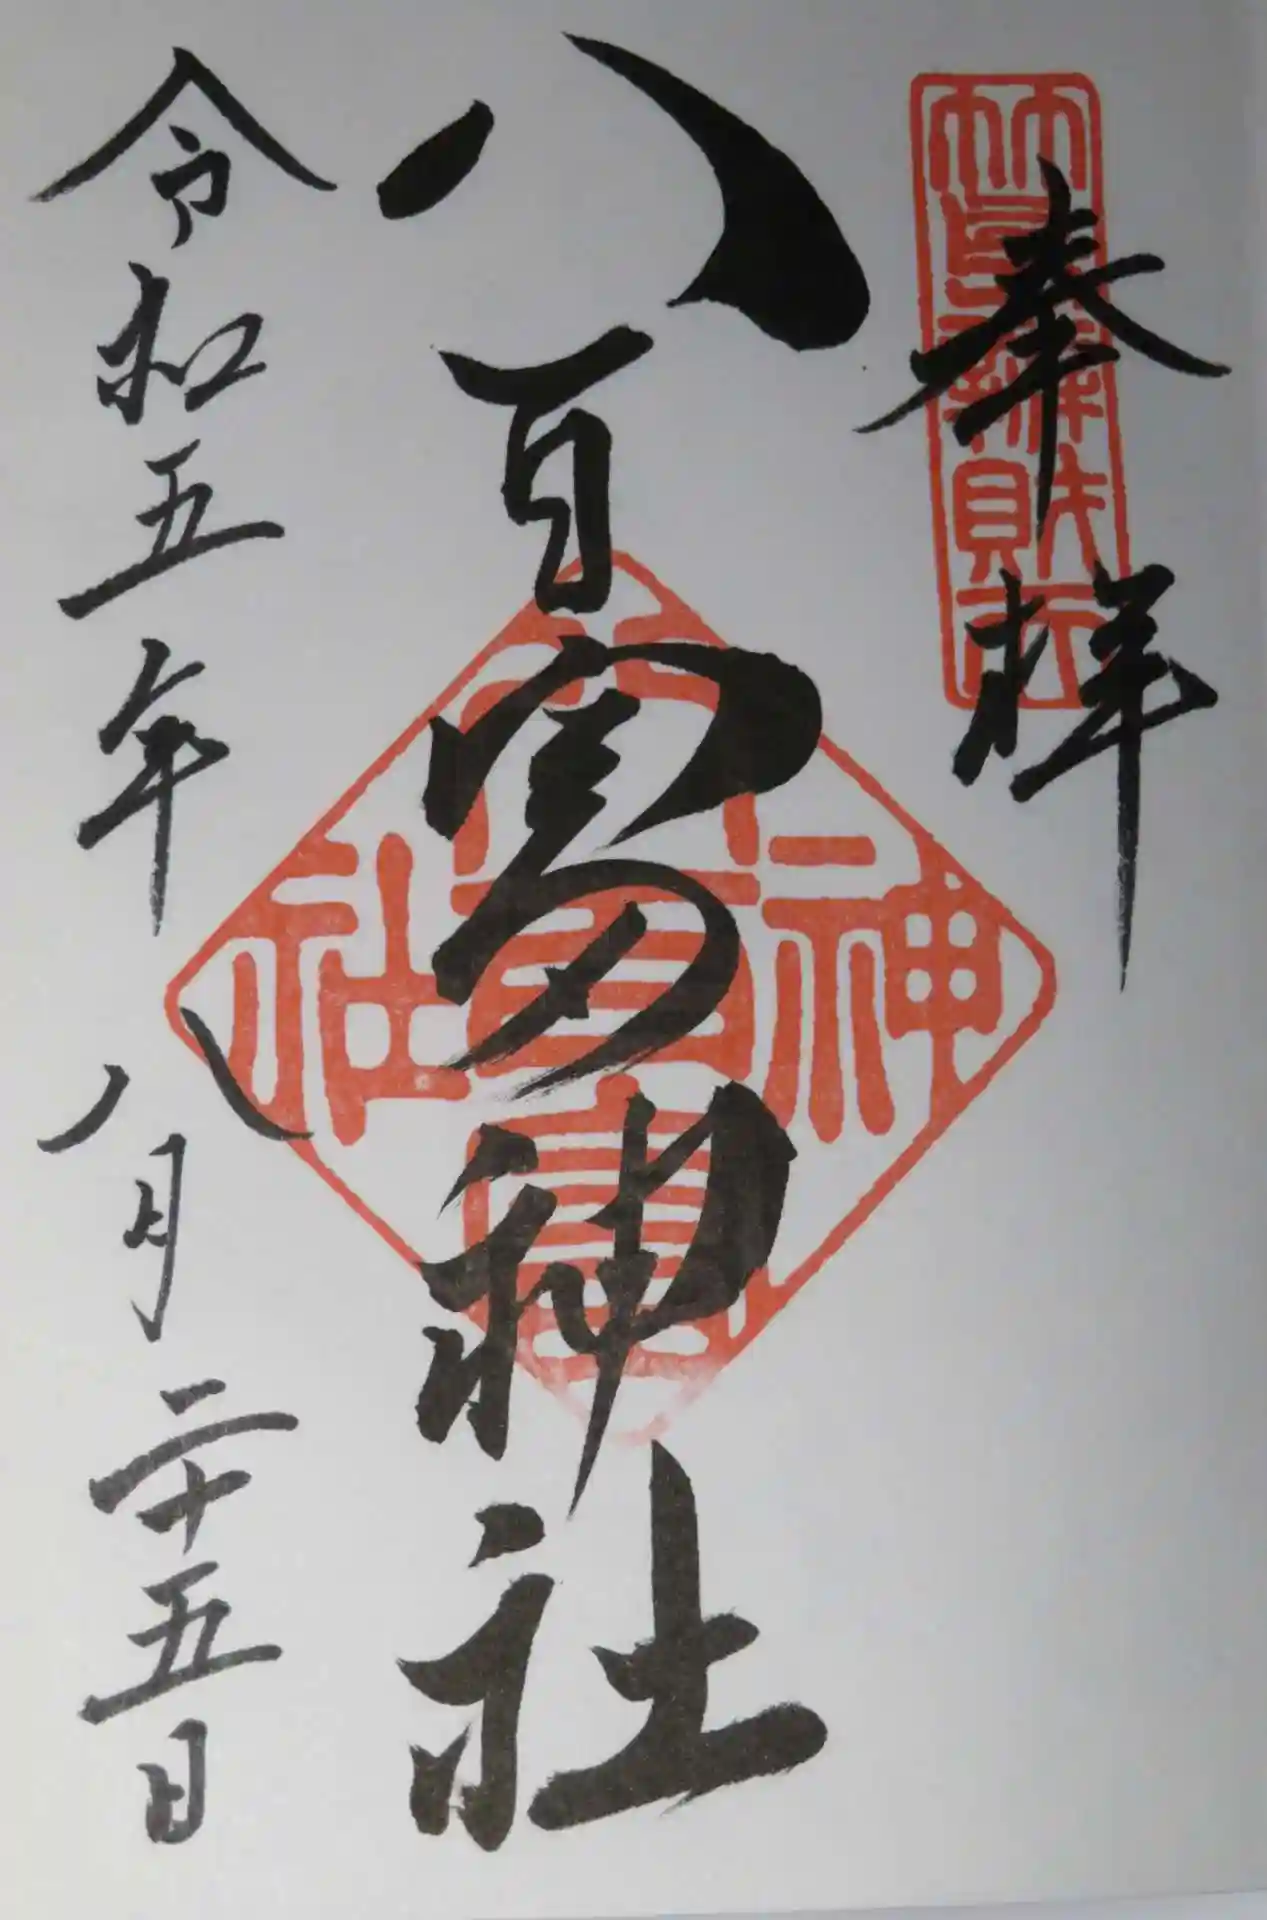 奉拝
竹島辨財天
八百富神社
八百富神社
令和五年八月二十五日